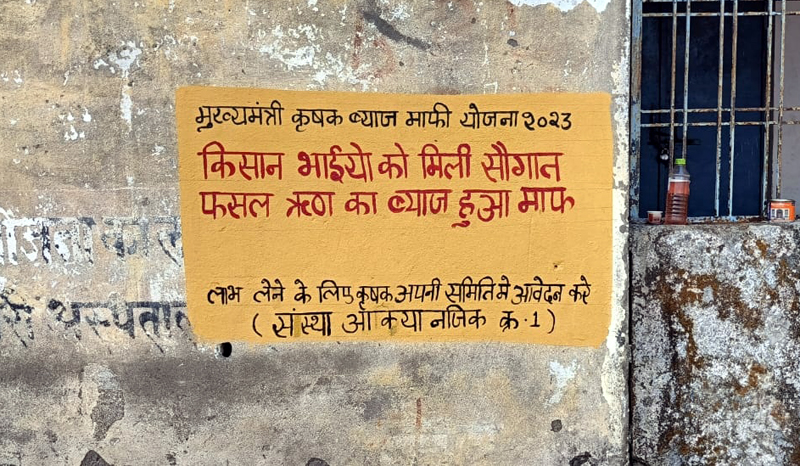 मुख्यमंत्री कृषक ब्याज माफी योजना २०२३
किसान भाईयो को मिली सौगात
फसल ऋण का ब्याज हुआ माफ
लाभ लेने के लिए कृषक अपनी समिति मे आवेदन करे
( संस्था ऑकया नजिक क्र. 1 )